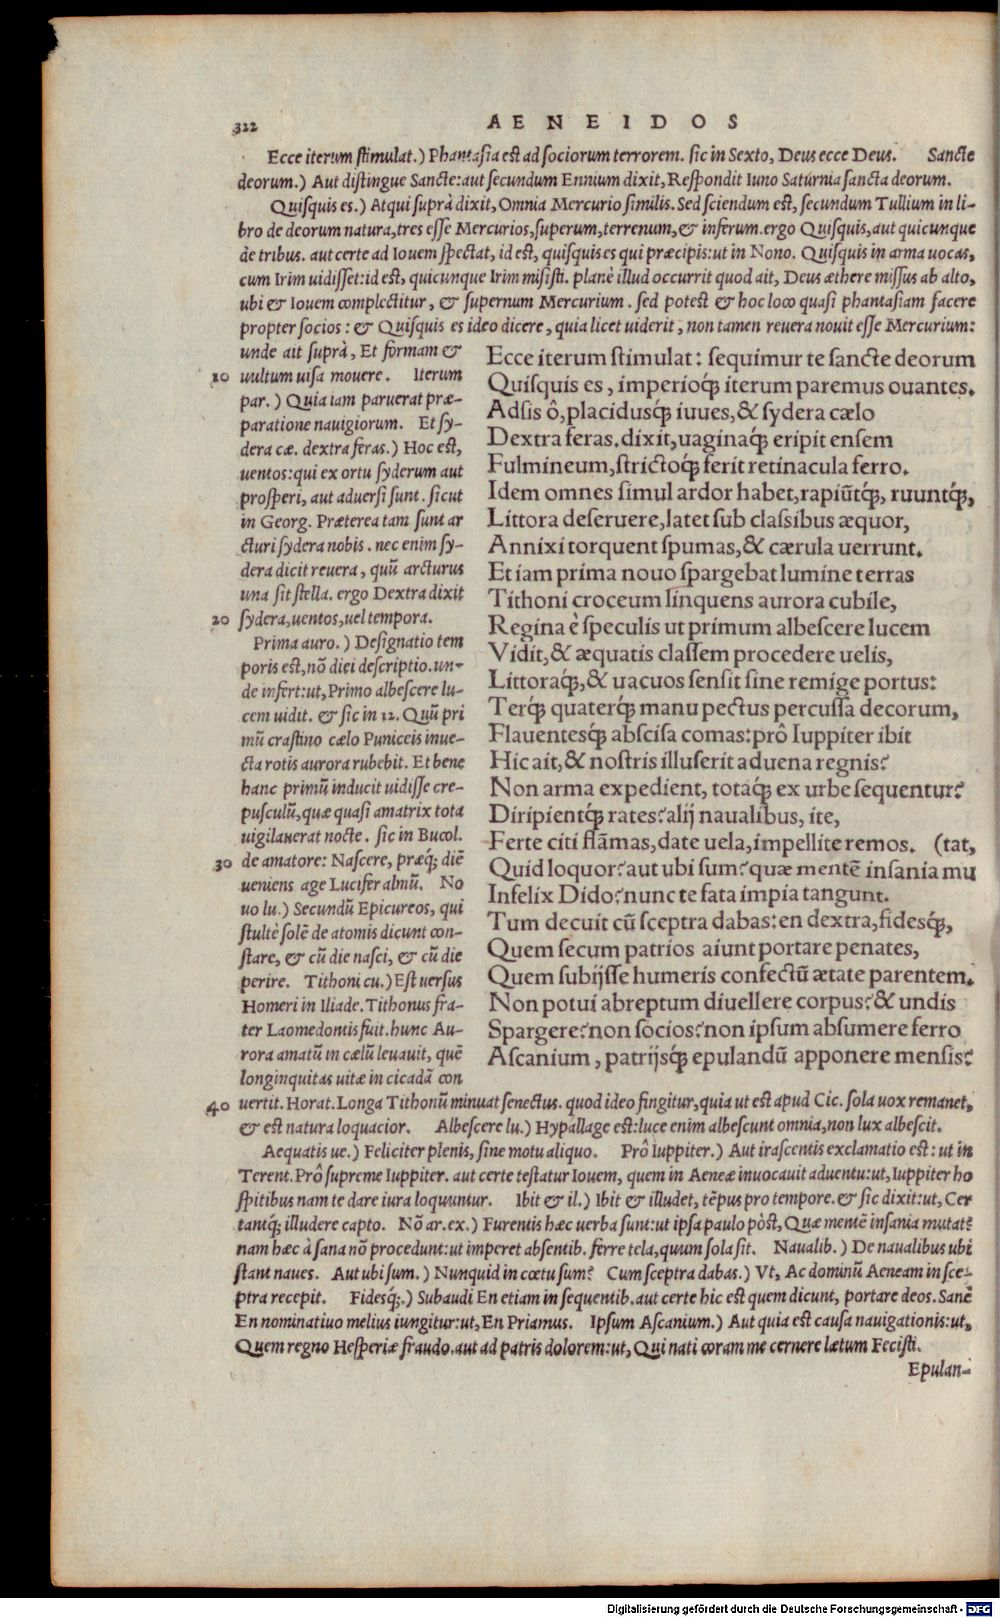 322 AENEIDOS
Ecce iterum ſtimulat.) Phantaſia eſt ad ſociorum terrorem. ſic in Sexto, Deus ecce Deus. Sancte
deorum.) Aut diſtingue Sancte:aut ſecundum Ennium dixit, Reſpondit Iuno Saturnia ſancta deorum.
Quiſquis es.) Atqui ſuprà dixit, Omnia Mercurio ſimilis. Sed ſciendum eſt, ſecundum Tullium in li-
bro de deorum natura, tres eſſe Mercurios, ſuperum, terrenum, & inferum. ergo Quiſquis, aut quicunque
de tribus. aut certe ad Iouem ſpectat, id eſt, quiſquis es qui præcipis:ut in Nono. Quiſquis in arma uocas,
cum Irim uidiſſet:id eſt, quicunque Irim miſiſti. planè illud occurrit quod ait, Deus æthere miſſus ab alto,
ubi & Iouem complectitur, & ſupernum Mercurium. ſed poteſt & hoc loco quaſi phantaſiam facere
propter ſocios: & Quiſquis es ideo dicere, quia licet uiderit, non tamen reuera nouit eſſe Mercurium:
unde ait ſuprà, Et formam &
10 uultum uiſa mouere. Iterum
par.) Quia iam paruerat præ-
paratione nauigiorum. Et ſy-
dera cæ. dextra feras.) Hoc eſt,
uentos:qui ex ortu ſyderum aut
proſperi, aut aduerſi ſunt. ſicut
in Georg. Præterea tam ſunt ar
cturi ſydera nobis. nec enim ſy-
dera dicit reuera, quũ arcturus
una ſit ſtella. ergo Dextra dixit
20 ſydera, uentos, uel tempora.
Prima auro.) Deſignatio tem
poris eſt, nõ diei deſcriptio. un-
de infert:ut, Primo albeſcere lu-
cem uidit. & ſic in 12. Quũ pri
mũ craſtino cælo Puniceis inue-
cta rotis aurora rubebit. Et bene
hanc primũ inducit uidiſſe cre-
puſculũ, quæ quaſi amatrix tota
uigilauerat nocte. ſic in Bucol.
30 de amatore: Naſcere, præq́; diẽ
ueniens age Lucifer almũ. No
uo lu.) Secundũ Epicureos, qui
ſtultè ſolẽ de atomis dicunt con-
ſtare, & cũ die naſci, & cũ die
perire. Tithoni cu.) Eſt uerſus
Homeri in Iliade. Tithonus fra-
ter Laomedontis fuit. hunc Au-
rora amatũ in cælũ leuauit, quẽ
longinquitas uitæ in cicadã con
Ecce iterum ſtimulat: ſequimur te ſancte deorum
Quiſquis es, imperioq́; iterum paremus ouantes.
Adſis ô, placidusq́; iuues, & ſydera cælo
Dextra feras. dixit, uaginaq́; eripit enſem
Fulmineum, ſtrictoq́; ferit retinacula ferro.
Idem omnes ſimul ardor habet, rapiũtq́;, ruuntq́;,
Littora deſeruere, latet ſub claſſibus æquor,
Annixi torquent ſpumas, & cærula uerrunt.
Et iam prima nouo ſpargebat lumine terras
Tithoni croceum linquens aurora cubile,
Regina è ſpeculis ut primum albeſcere lucem
Vidit, & æquatis claſſem procedere uelis,
Littoraq́;, & uacuos ſenſit ſine remige portus:
Terq́; quaterq́; manu pectus percuſſa decorum,
Flauentesq́; abſciſa comas:prô Iuppiter ibit
Hic ait, & noſtris illuſerit aduena regnis?
Non arma expedient, totaq́; ex urbe ſequentur?
Diripientq́; rates? alij naualibus, ite,
Ferte citi flãmas, date uela, impellite remos. (tat,
Quid loquor? aut ubi ſum? quæ mentẽ inſania mu
Infelix Dido? nunc te fata impia tangunt.
Tum decuit cũ ſceptra dabas:en dextra, fidesq́;,
Quem ſecum patrios aiunt portare penates,
Quem ſubijſſe humeris confectũ ætate parentem.
Non potui abreptum diuellere corpus? & undis
Spargere? non ſocios? non ipſum abſumere ferro
Aſcanium, patrijsq́; epulandũ apponere menſis?
40 uertit. Horat. Longa Tithonũ minuat ſenectus. quod ideo fingitur, quia ut eſt apud Cic. ſola uox remanet,
& eſt natura loquacior. Albeſcere lu.) Hypallage eſt:luce enim albeſcunt omnia, non lux albeſcit.
Aequatis ue.) Feliciter plenis, ſine motu aliquo. Prô Iuppiter.) Aut iraſcentis exclamatio eſt: ut in
Terent. Prô ſupreme Iuppiter. aut certe teſtatur Iouem, quem in Aeneæ inuocauit aduentu:ut, Iuppiter ho
ſpitibus nam te dare iura loquuntur. Ibit & il.) Ibit & illudet, tẽpus pro tempore. & ſic dixit:ut, Cer
tantq́; illudere capto. Nõ ar. ex.) Furentis hæc uerba ſunt:ut ipſa paulo pòſt, Quæ mentẽ inſania mutat?
nam hæc à ſana nõ procedunt:ut imperet abſentib. ferre tela, quum ſola ſit. Naualib.) De naualibus ubi
ſtant naues. Aut ubi ſum.) Nunquid in cœtu ſum? Cum ſceptra dabas.) Vt, Ac dominũ Aeneam in ſce-
ptra recepit. Fidesq́;.) Subaudi En etiam in ſequentib. aut certe hic eſt quem dicunt, portare deos. Sanè
En nominatiuo melius iungitur:ut, En Priamus. Ipſum Aſcanium.) Aut quia eſt cauſa nauigationis:ut,
Quem regno Heſperiæ fraudo. aut ad patris dolorem:ut, Qui nati coram me cernere lætum Feciſti.
Epulan-
Digitalisierung gefördert durch die Deutsche Forschungsgemeinschaft - DFG